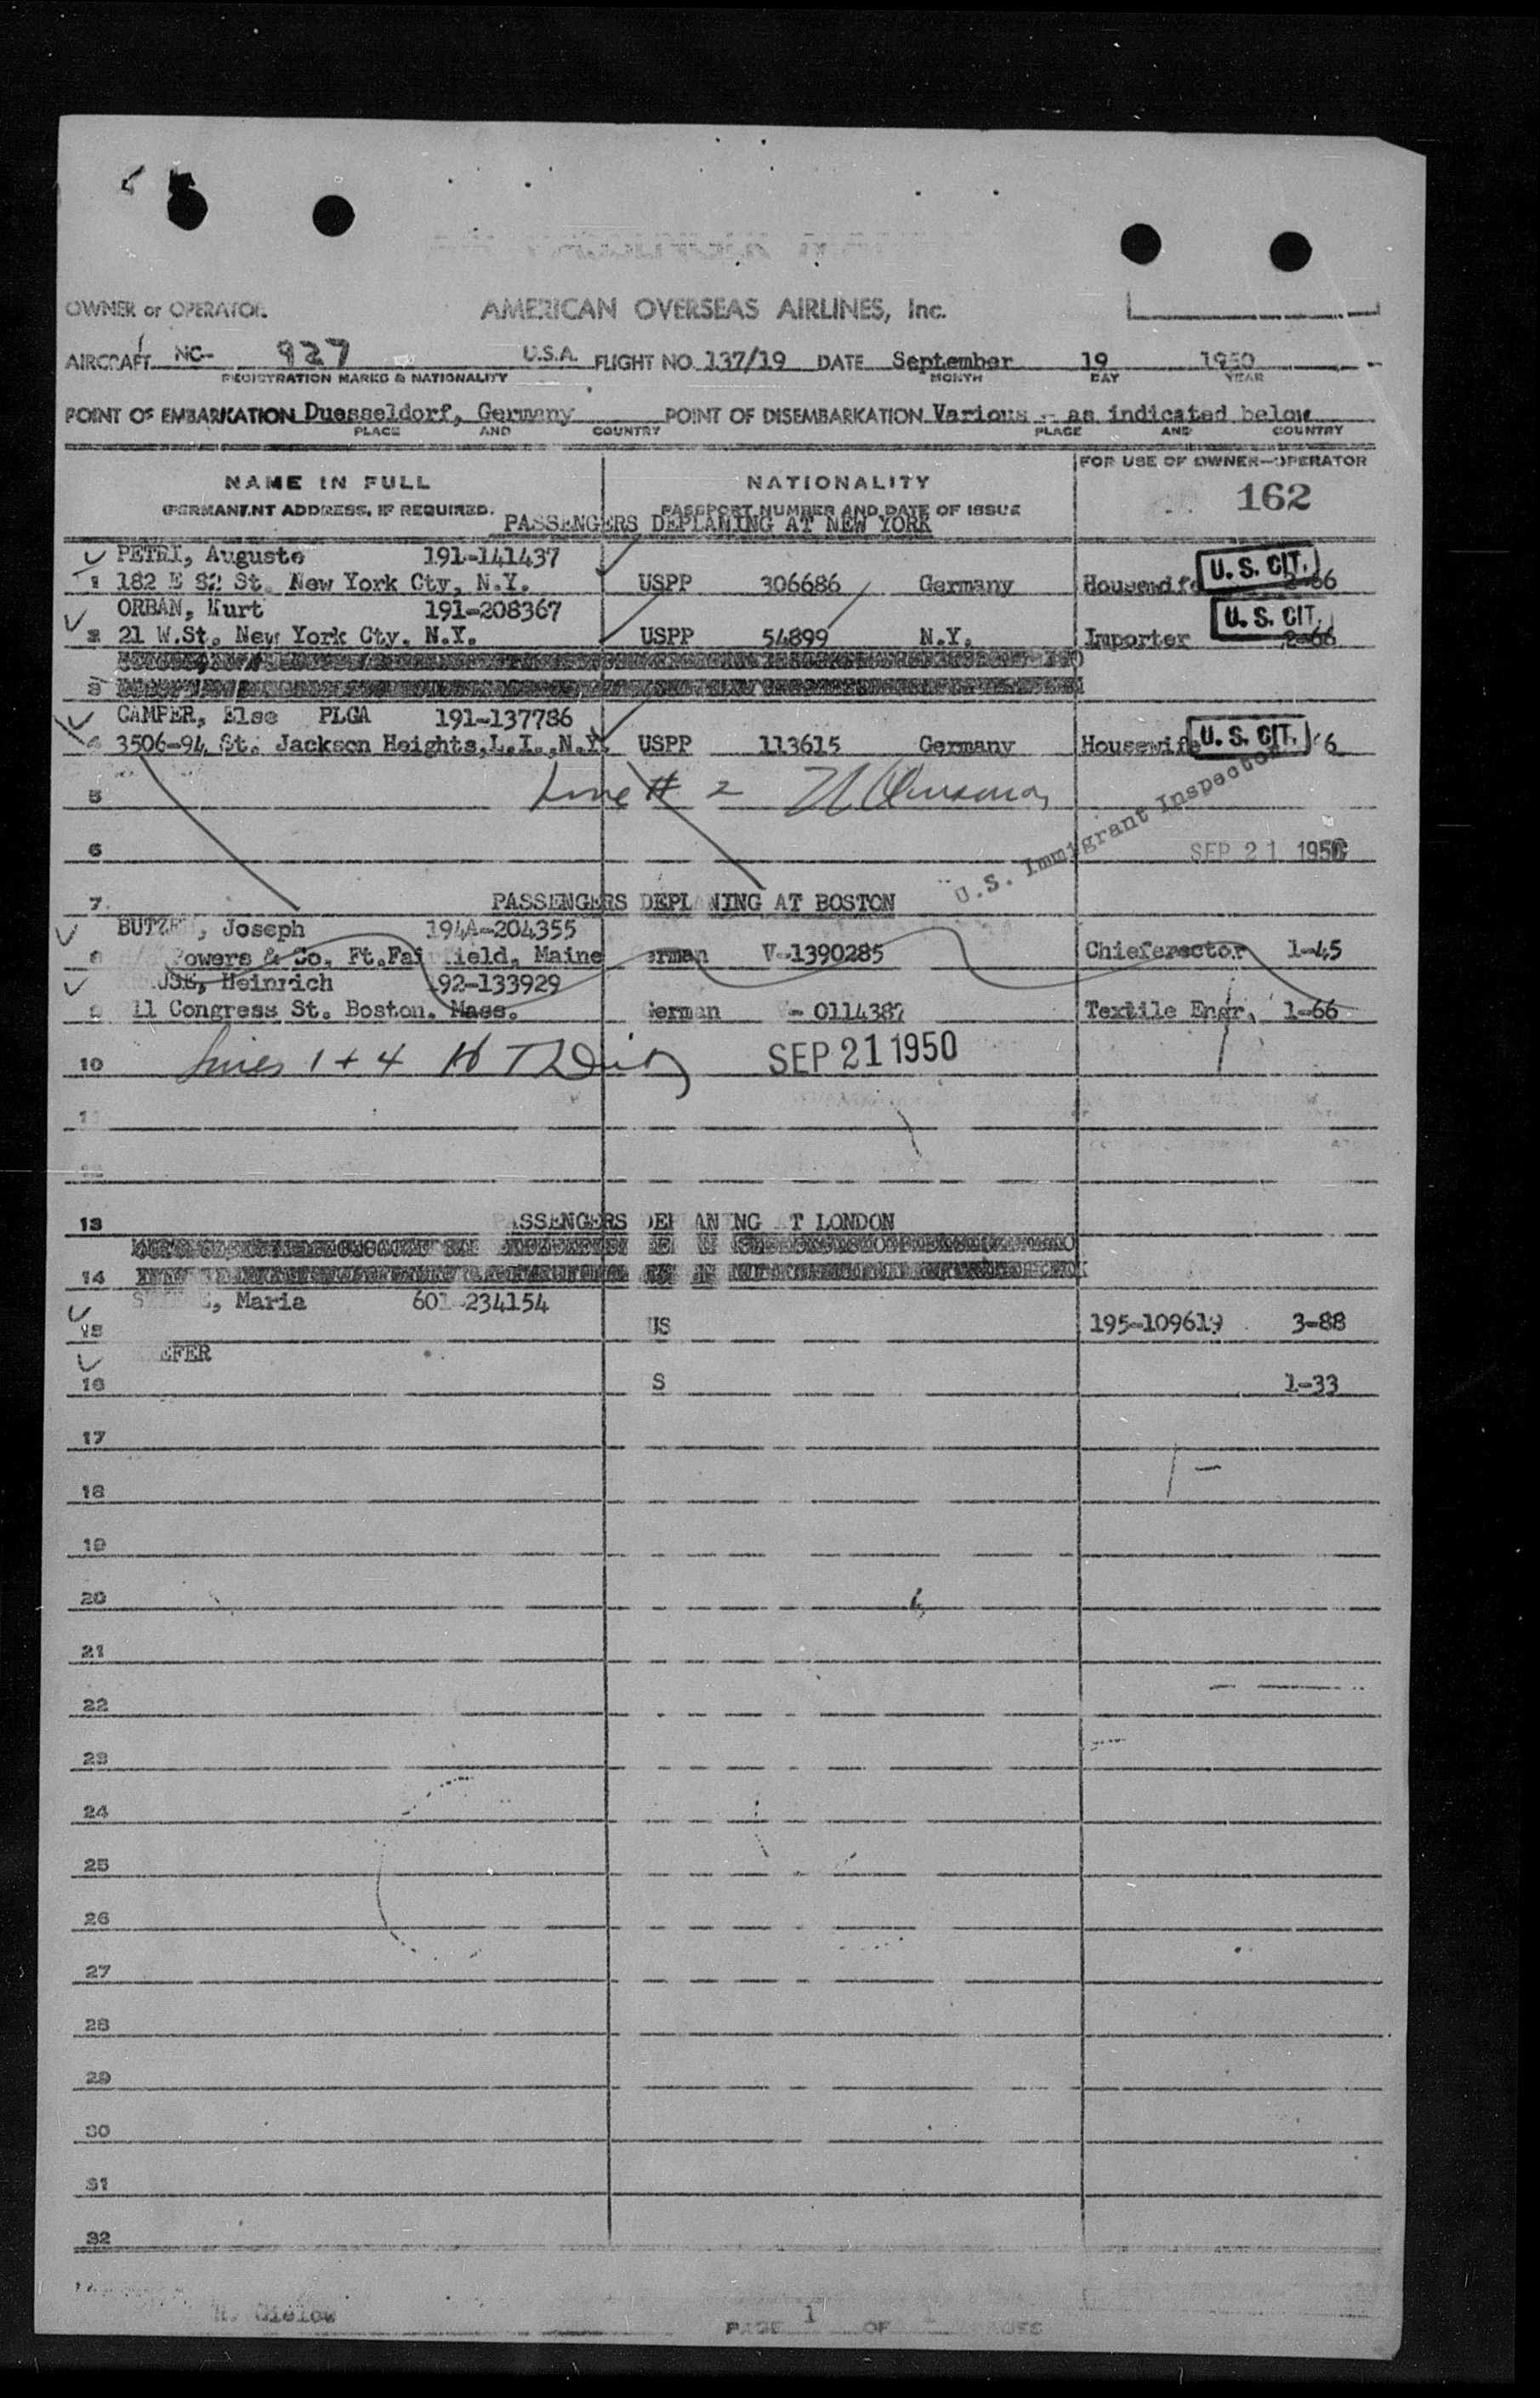 OWNER or OPERATOR AMERICAN OVERSEAS AIRLINES, Inc.
AIRCRAFT NC- 927 U.S.A. FLIGHT NO. 137/19 DATE September 19 1950
REGISTRATION MARKS & NATIONALITY MONTH DAY YEAR
POINT OF EMBARKATION Duesseldorf, Germany POINT OF DISEMBARKATION Various - as indicated below
PLACE AND COUNTRY PLACE AND COUNTRY
NAME IN FULL NATIONALITY FOR USE OF OWNER-OPERATOR
(PERMANENT ADDRESS, IF REQUIRED. PASSPORT NUMBER AND DATE OF ISSUE 162
PASSENGERS DEPLANING AT NEW YORK
PETRI, Auguste 191-141437
1 182 E 82 St. New York Cty, N.Y. USPP 306686 Germany Housewife U. S. CIT. 66
ORBAN, Kurt 191-208367
2 21 W.St. New York Cty. N.Y. USPP 54899 N.Y. Importer U. S. CIT. 2-66
3
CAMPER, Else PLGA 191-137786
4 3506-94 St. Jackson Heights, L.I., N.Y. USPP 113615 Germany Housewife U. S. CIT. 6
5 Line # 2
U.S. Immigrant Inspector
6 SEP 21 1950
7 PASSENGERS DEPLANING AT BOSTON
, Joseph 194A-204355
8 Powers & Co. Ft.Fairfield, Maine erman V-1390285 Chieferector 1-45
USE, Heinrich 92-133929
9 11 Congress St. Boston. Mass. German - 0114387 Textile Engr. 1-66
10 Lines 1 + 4 SEP 21 1950
11
12
13 ASSENGERS DEP AN NG T LONDON
14
, Maria 601-234154
15 US 195-109619 3-88
EFER
16 S 1-33
17
18
19
20
21
22
23
24
25
26
27
28
29
30
31
32
PAGE 1 OF PAGES